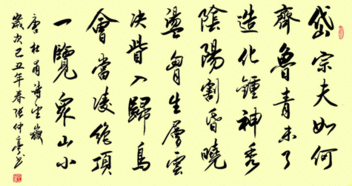 岱宗夫如何
齊魯青未了
造化鍾神秀
陰陽割昏曉
盪胷生層雲
決眥入歸鳥
會當凌絶頂
一覽衆山小
唐杜甫詩望嶽
歲次己丑年春張仲亭書